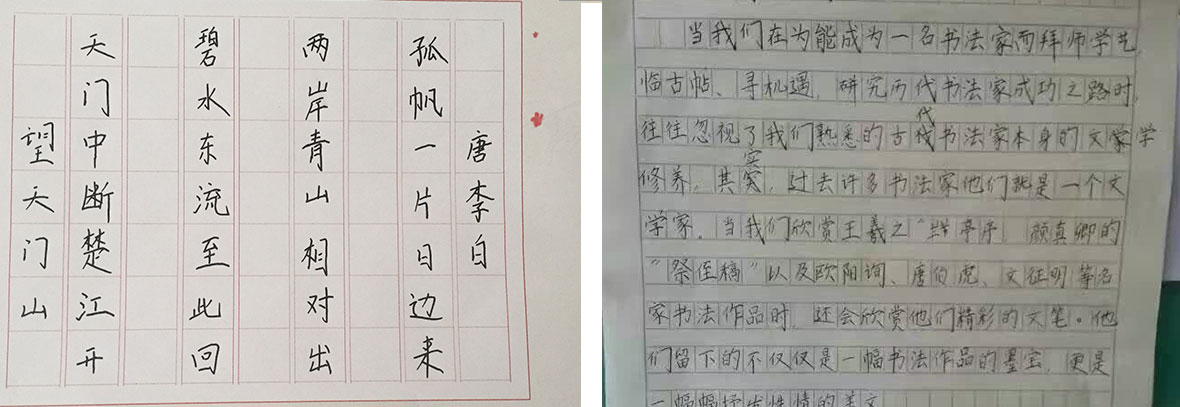 望天门山
天门中断楚江开
碧水东流至此回
两岸青山相对出
孤帆一片日边来
唐李白
当我们在为能成为一名书法家而拜师学艺
临古帖、寻机遇,研究历代书法家成功之路时,
往往忽视了我们熟悉的古代书法家本身的文学
修养。其实,过去许多书法家他们就是一个文
学家。当我们欣赏王羲之"兰亭序、颜真卿的
"祭侄稿"以及欧阳询、唐伯虎、文征明等名
家书法作品时,还会欣赏他们精彩的文笔。他
们留下的不仅仅是一幅书法作品的墨宝,更是
一幅幅抒发性情的美文